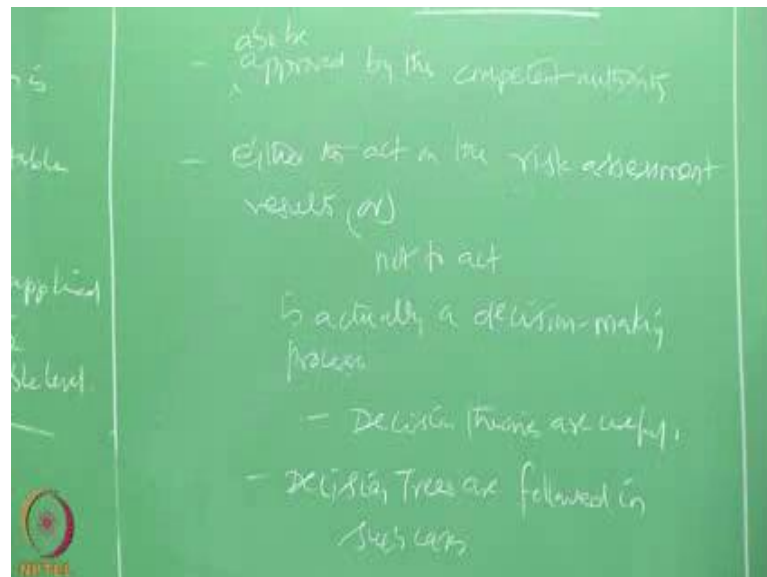 n is
also be
- approved by the competent authority
table
- either to act on the risk assessment
results (or)
not to act
applied
is actually a decision-making
process
ble level.
- Decision theories are useful.
- Decision Trees are followed in
such cases
NPTEL